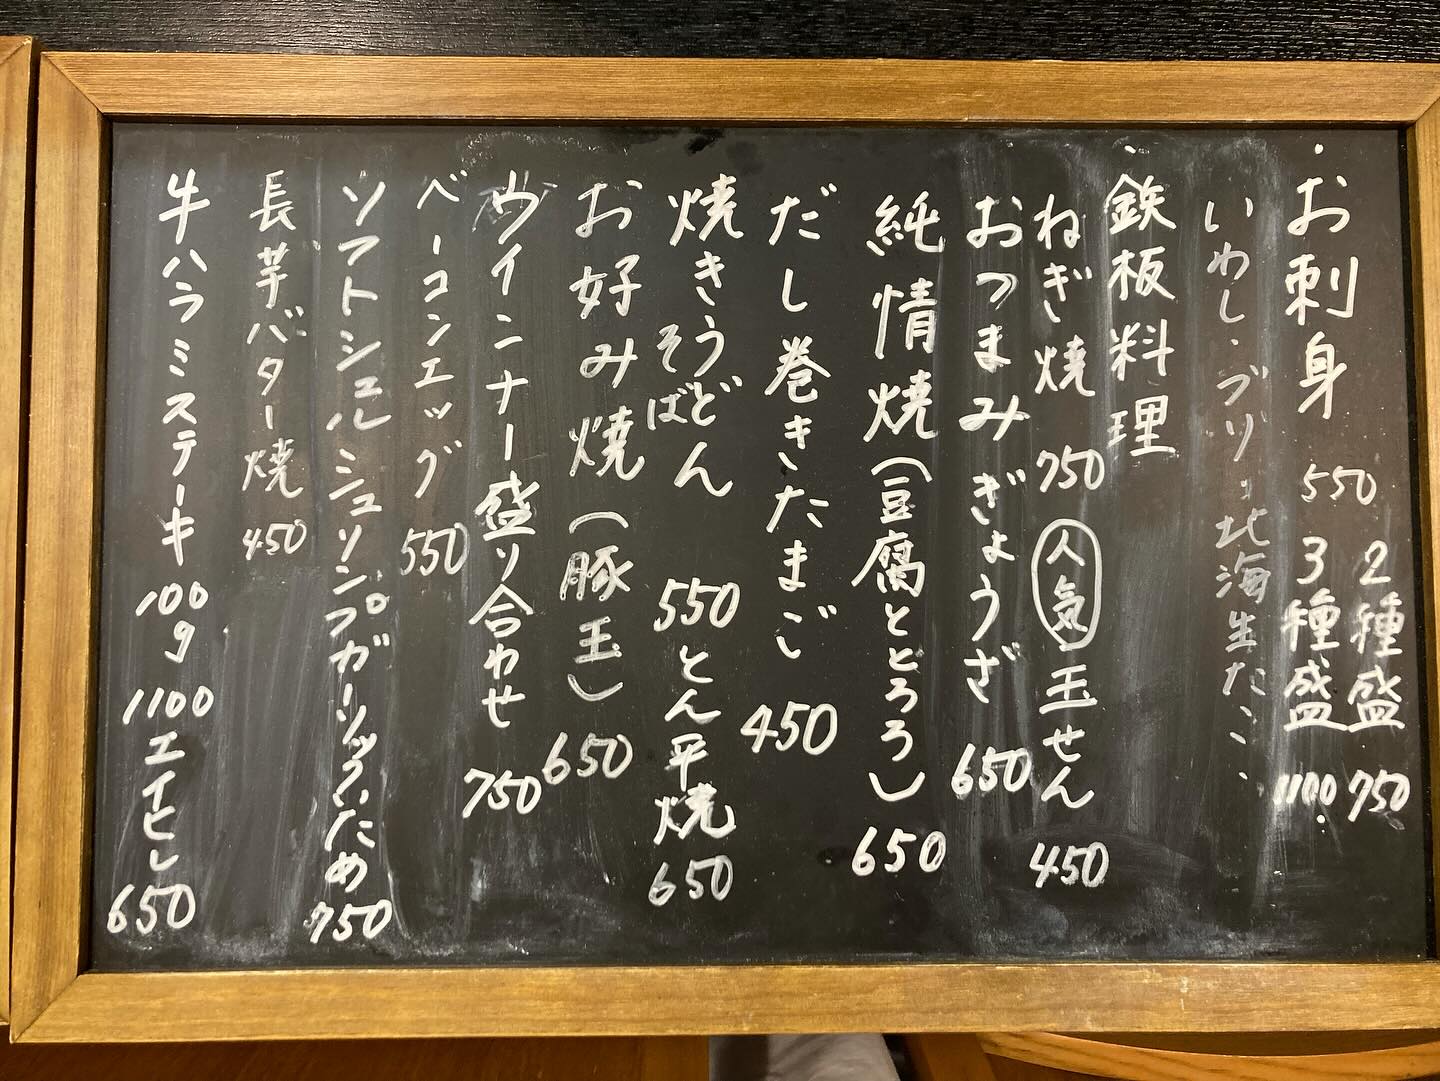 ・お刺身 550 2種盛 750
3種盛 1100
いわし・ブリ・北海生たこ
・鉄板料理
ねぎ焼 750 人気 玉せん 450
おつまみぎょうざ 650
純情焼(豆腐ととろろ) 650
だし巻きたまご 450
焼きうどん 550 とん平焼 650
そば
お好み焼(豚玉) 650
ウインナー盛り合わせ 750
ベーコンエッグ 550
ソフトシェルシュリンプガーリックいため 750
長芋バター焼 450
牛ハラミステーキ 100g 1100 エイヒレ 650